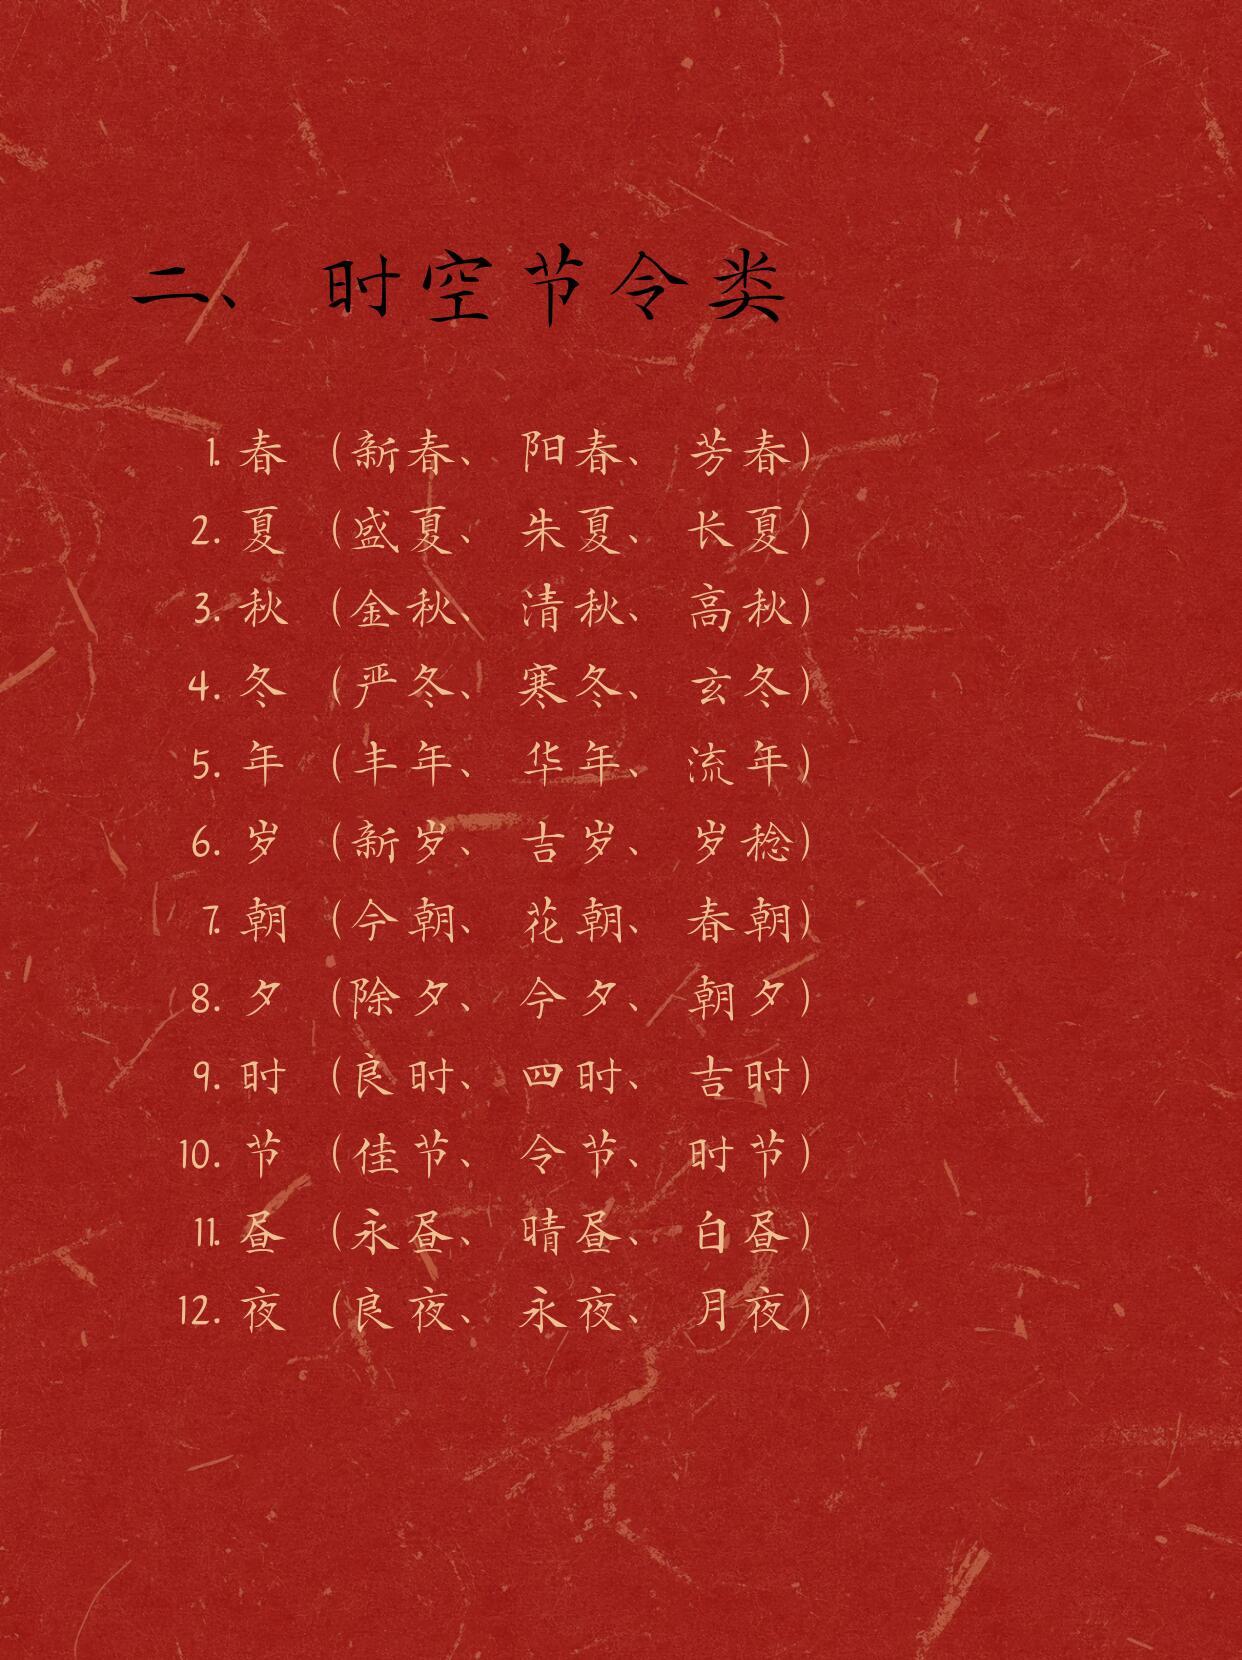 二、 时空节令类
1. 春 （新春、 阳春、 芳春）
2. 夏 （盛夏、 朱夏、 长夏）
3. 秋 （金秋、 清秋、 高秋）
4. 冬 （严冬、 寒冬、 玄冬）
5. 年 （丰年、 华年、 流年）
6. 岁 （新岁、 吉岁、 岁稔）
7. 朝 （今朝、 花朝、 春朝）
8. 夕 （除夕、 今夕、 朝夕）
9. 时 （良时、 四时、 吉时）
10. 节 （佳节、 令节、 时节）
11. 昼 （永昼、 晴昼、 白昼）
12. 夜 （良夜、 永夜、 月夜）